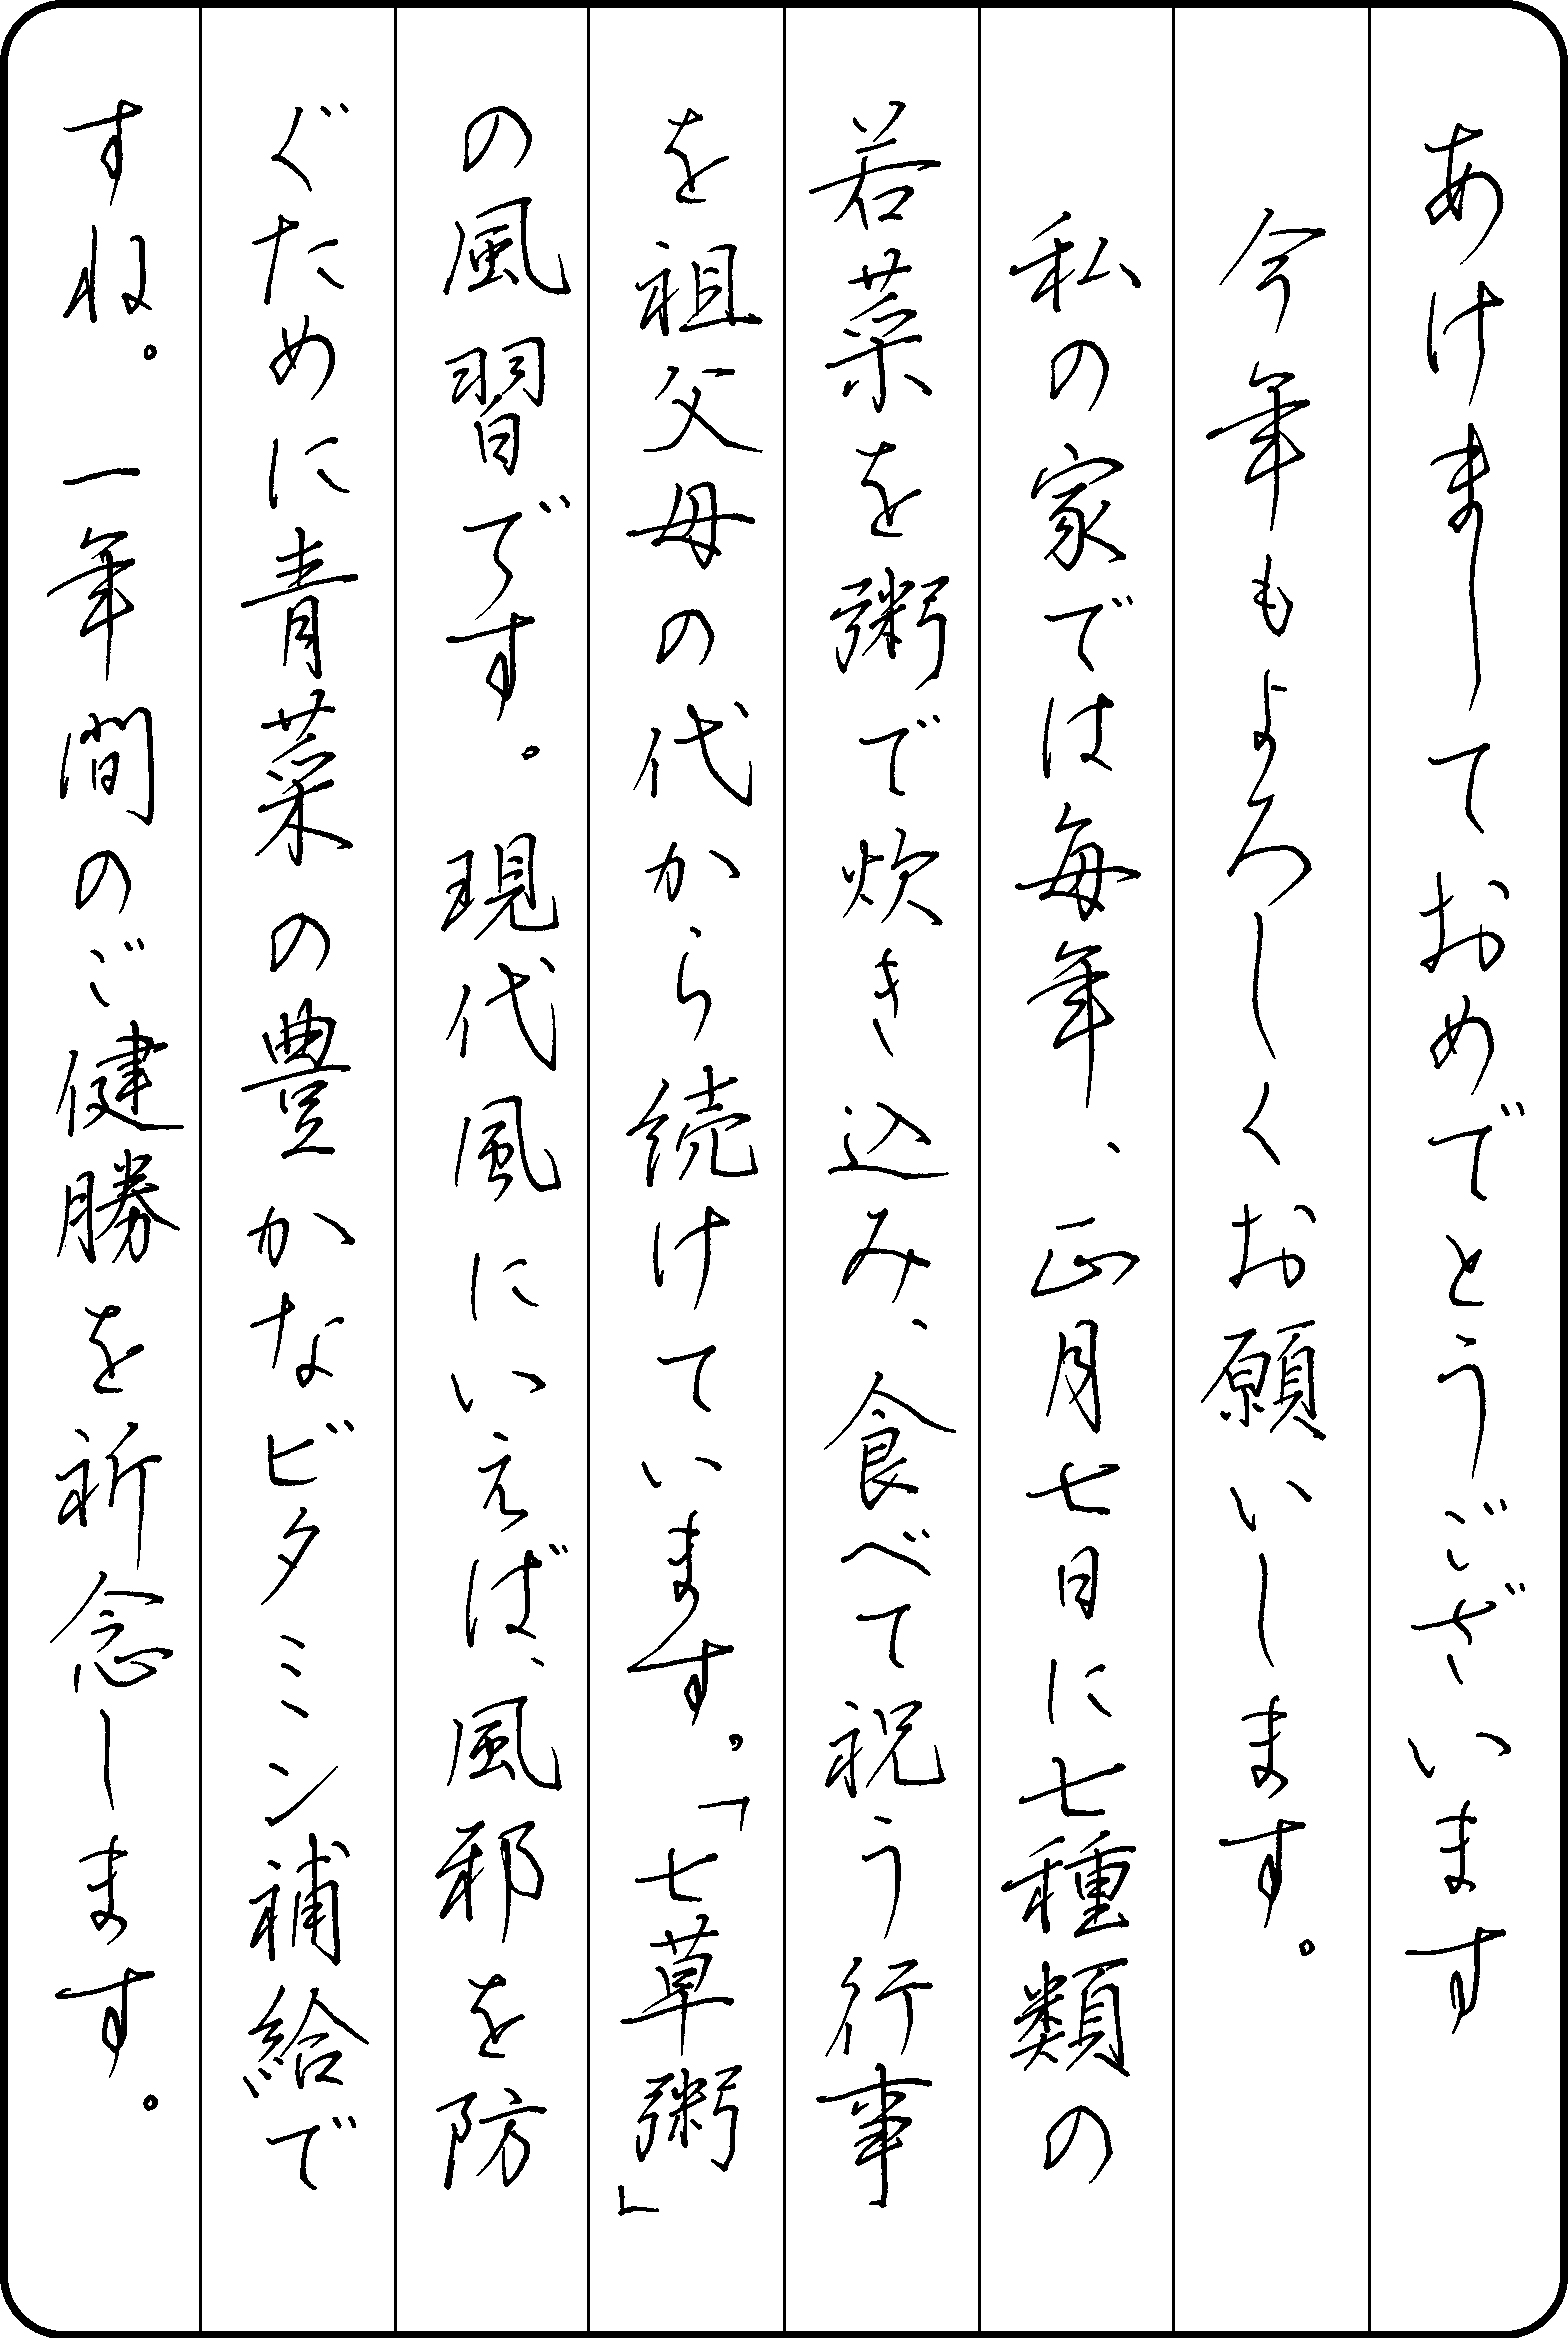 あけましておめでとうございます
今年もよろしくお願いします。
私の家では毎年、正月七日に七種類の
若菜を粥で炊き込み、食べて祝う行事
を祖父母の代から続けています。「七草粥」
の風習です。現代風にいえば、風邪を防
ぐために青菜の豊かなビタミン補給で
すね。一年間のご健勝を祈念します。